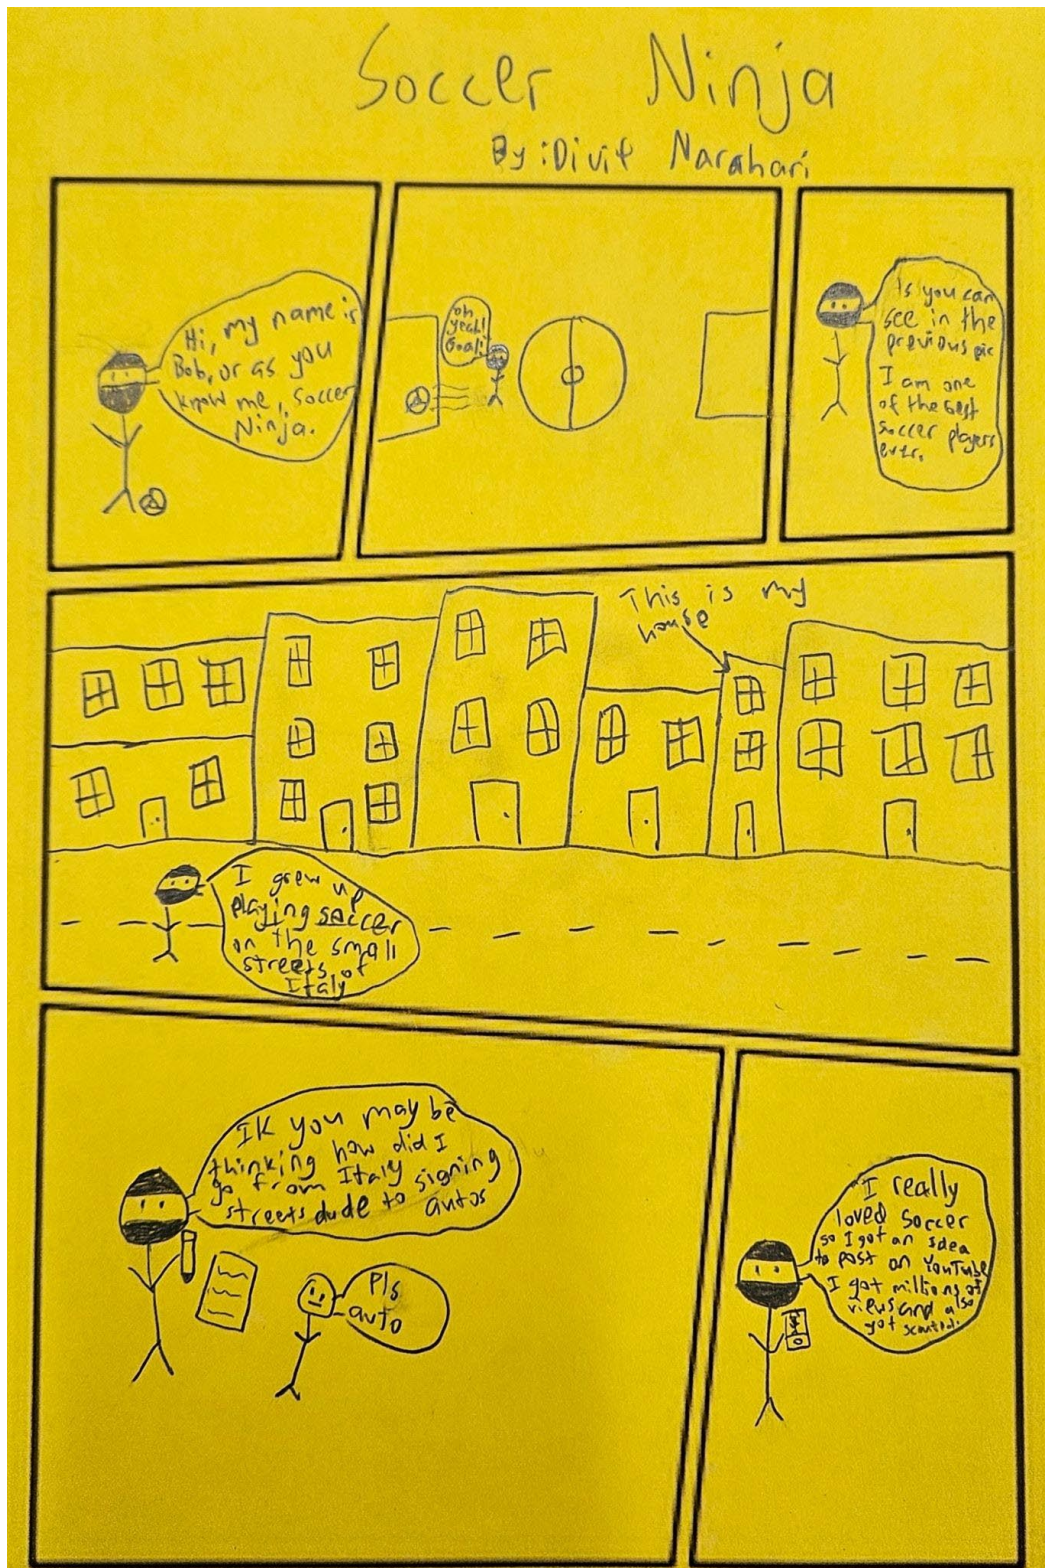 Soccer Ninja
By: Divit Narahari
Hi, my name is
Bob, or as you
know me, Soccer
Ninja.
oh
yeah!
Goal!
As you can
see in the
previous pic
I am one
of the best
soccer players
ever.
This is my
house
I grew up
playing soccer
on the small
streets of
Italy
IK you may be
thinking how did I
go from Italy
streets dude to signing
autos
Pls
auto
I really
loved soccer
so I got an idea
to post on YouTube
I got millions of
views and also
got scouted.